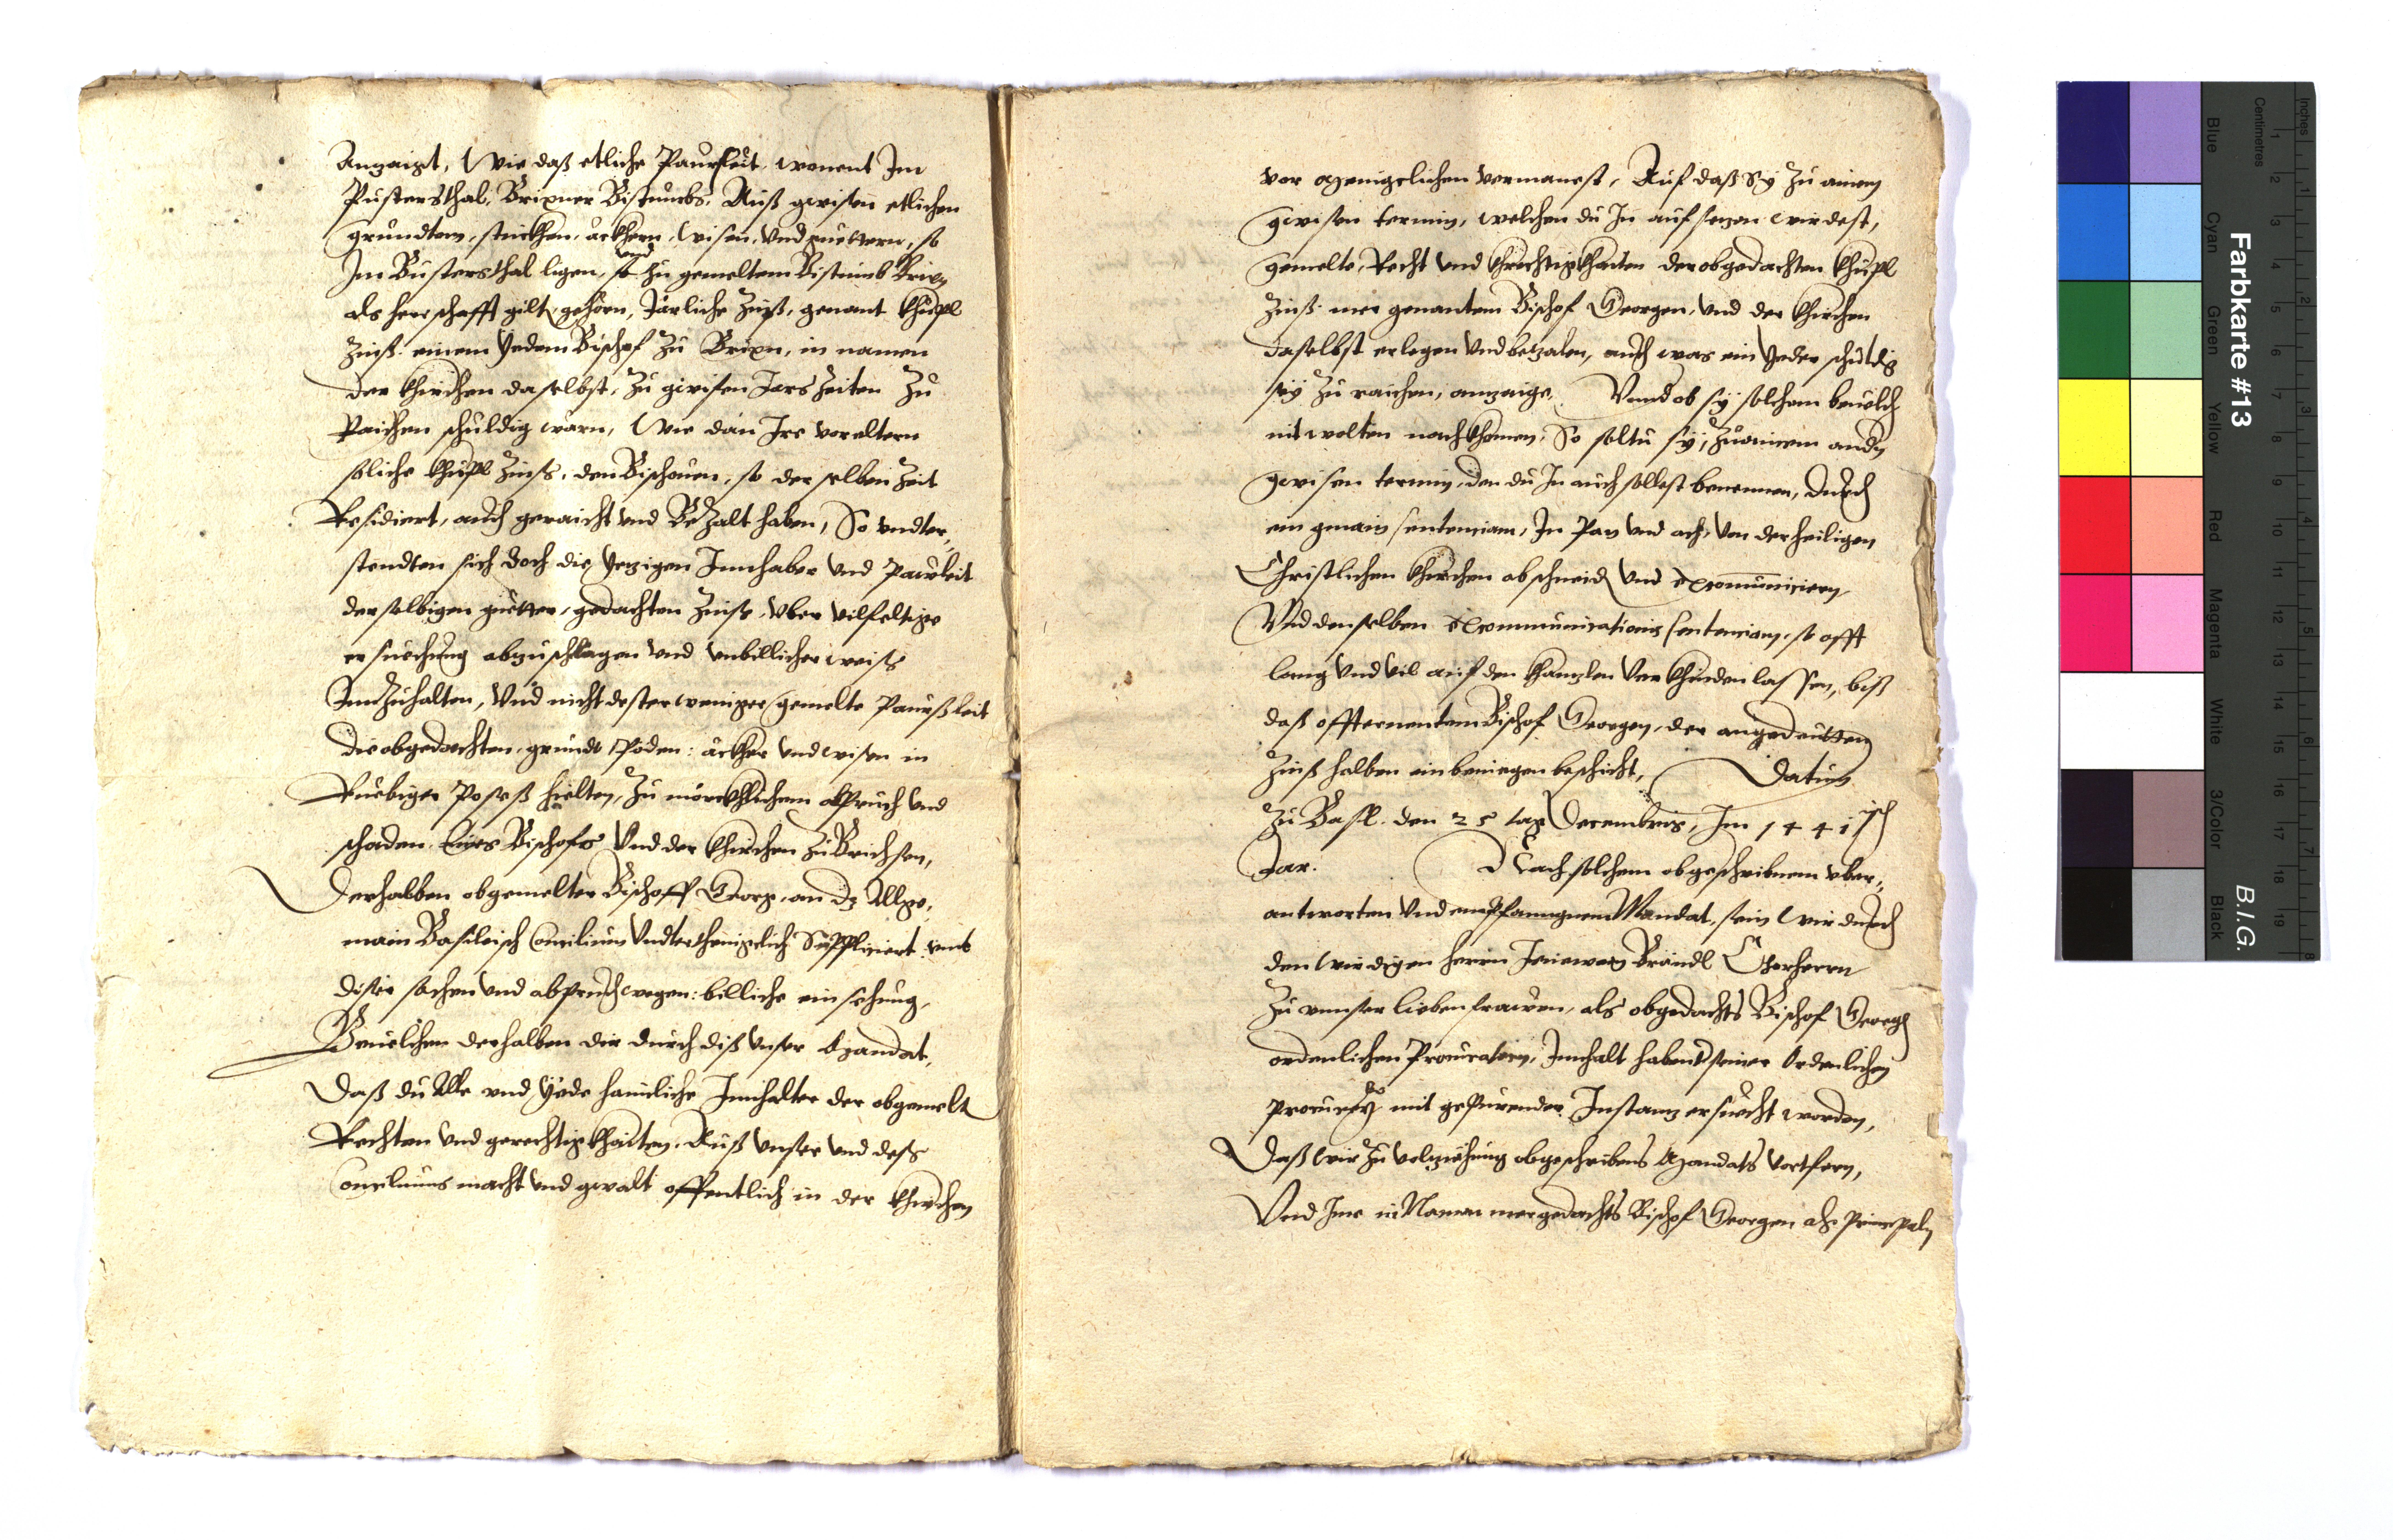 Anzaigt, Wie daß etliche Paursleüt, wonent Im
Pustersthal, Brixner Bistumbs, Auß gwisen etlichen
gründten, stuckhen, äckhern, Wisen, Vnd guettern, so
Im Pustersthal ligen, vnd so zu gemeltem Bistumb Brixn
als herrschafft gilt, gehörn, Järliche Zinß, genant khüpl
Zinß. einem Yedem Bischof Zu Brixn, in namen
der khirchen daselbst, Zu gwisen Jars Zeiten Zu
Raichen schuldig wärn, Wie dan Ire voreltern
soliche khüpl Zinß, den Bischouen, so der selben Zeit
Residiert, auch geraicht vnd Bezalt haben, So vndter„
stendten sich doch die Yezigen Innhaber vnd Paursleit
der selbigen guetter, gedachten Zinß, vber vilfeltige
ersuechung abzuschlagen vnd vnbillicher weiß
Innzuhalten, Vnd nicht dester weniger gemelte Paurßleit
die obgedachten, gründt, Pöden: äckher vnd wisen in
Ruebiger Poseß hielten, Zu mörckhlichem abpruch vnd
schaden, Eines Bischofs Vnd der khirchen zu Brichsen,
Derhalben obgemelter Bischoff Georg, an dz Allge„
main Basileisch Concilium Vndterthenigclich Suppliciert vmb
diser sachen vnd abpruch wegen: billiche einsehung,
Beuelchen derhalben dir durch diß vnser Mandat,
Daß du Alle vnd Yede haimliche Innhalter der obgemelt
Rechten vnd gerechtigkhaiten, Auß vnser vnd deß
Conciliums macht vnd gwalt offentlich in der khirchen
vor Menigclichen vermanest, Auf daß Sy zu ainem
gwisen termin, welchen du In auf sezen wirdest,
gemelte, Recht vnd Gerechtigkhaiten der obgedachten khüpl
Zinß. mer genantem Bischof Georgen, vnd der khirchen
daselbst erlegen vnd betzalen, auch was ein Yeder schuldig
sey zu raichen, anzaige. Vnnd ob sy solchem beuelch
nit wolten nachkhomen, So soltu sy, Zu ainem andn
gwisen termin, den du In auch sollest benennen, durch
ein gmain sentenciam, In Pan vnd ach, von der heiligen
Christlichen khirchen abschneid vnd excomuniciern
Vnd denselben excommunicationis sentenciam, so offt
lang vnd vil auf den khanzlen verkhinden lassen, biß
daß offternentem Bischof Georgen, der angedeutten
Zinß halben ein beniegen beschicht, Datum
Zu Basl. den 25 tag Decembris, Im 1441isch
Jar. Nach solchem obgeschribnem vber„
antworten vnd empfanngnem Mandat, sein Wir durch
den Wirdigen herrn Jeniewein Brändl Chorherrn
Zu vnnser lieben frawen, als obgedachts Bischof Georgn
ordenlichen Procuratorn, Innhalt habend seiner Ordenlichen
procurey mit gepürender Instanz ersuecht worden,
Daß Wir zu volziehung obgeschribens Mandats vortfern,
Vnd Ime in Namen mergedachts Bischof Georgen als Principaln